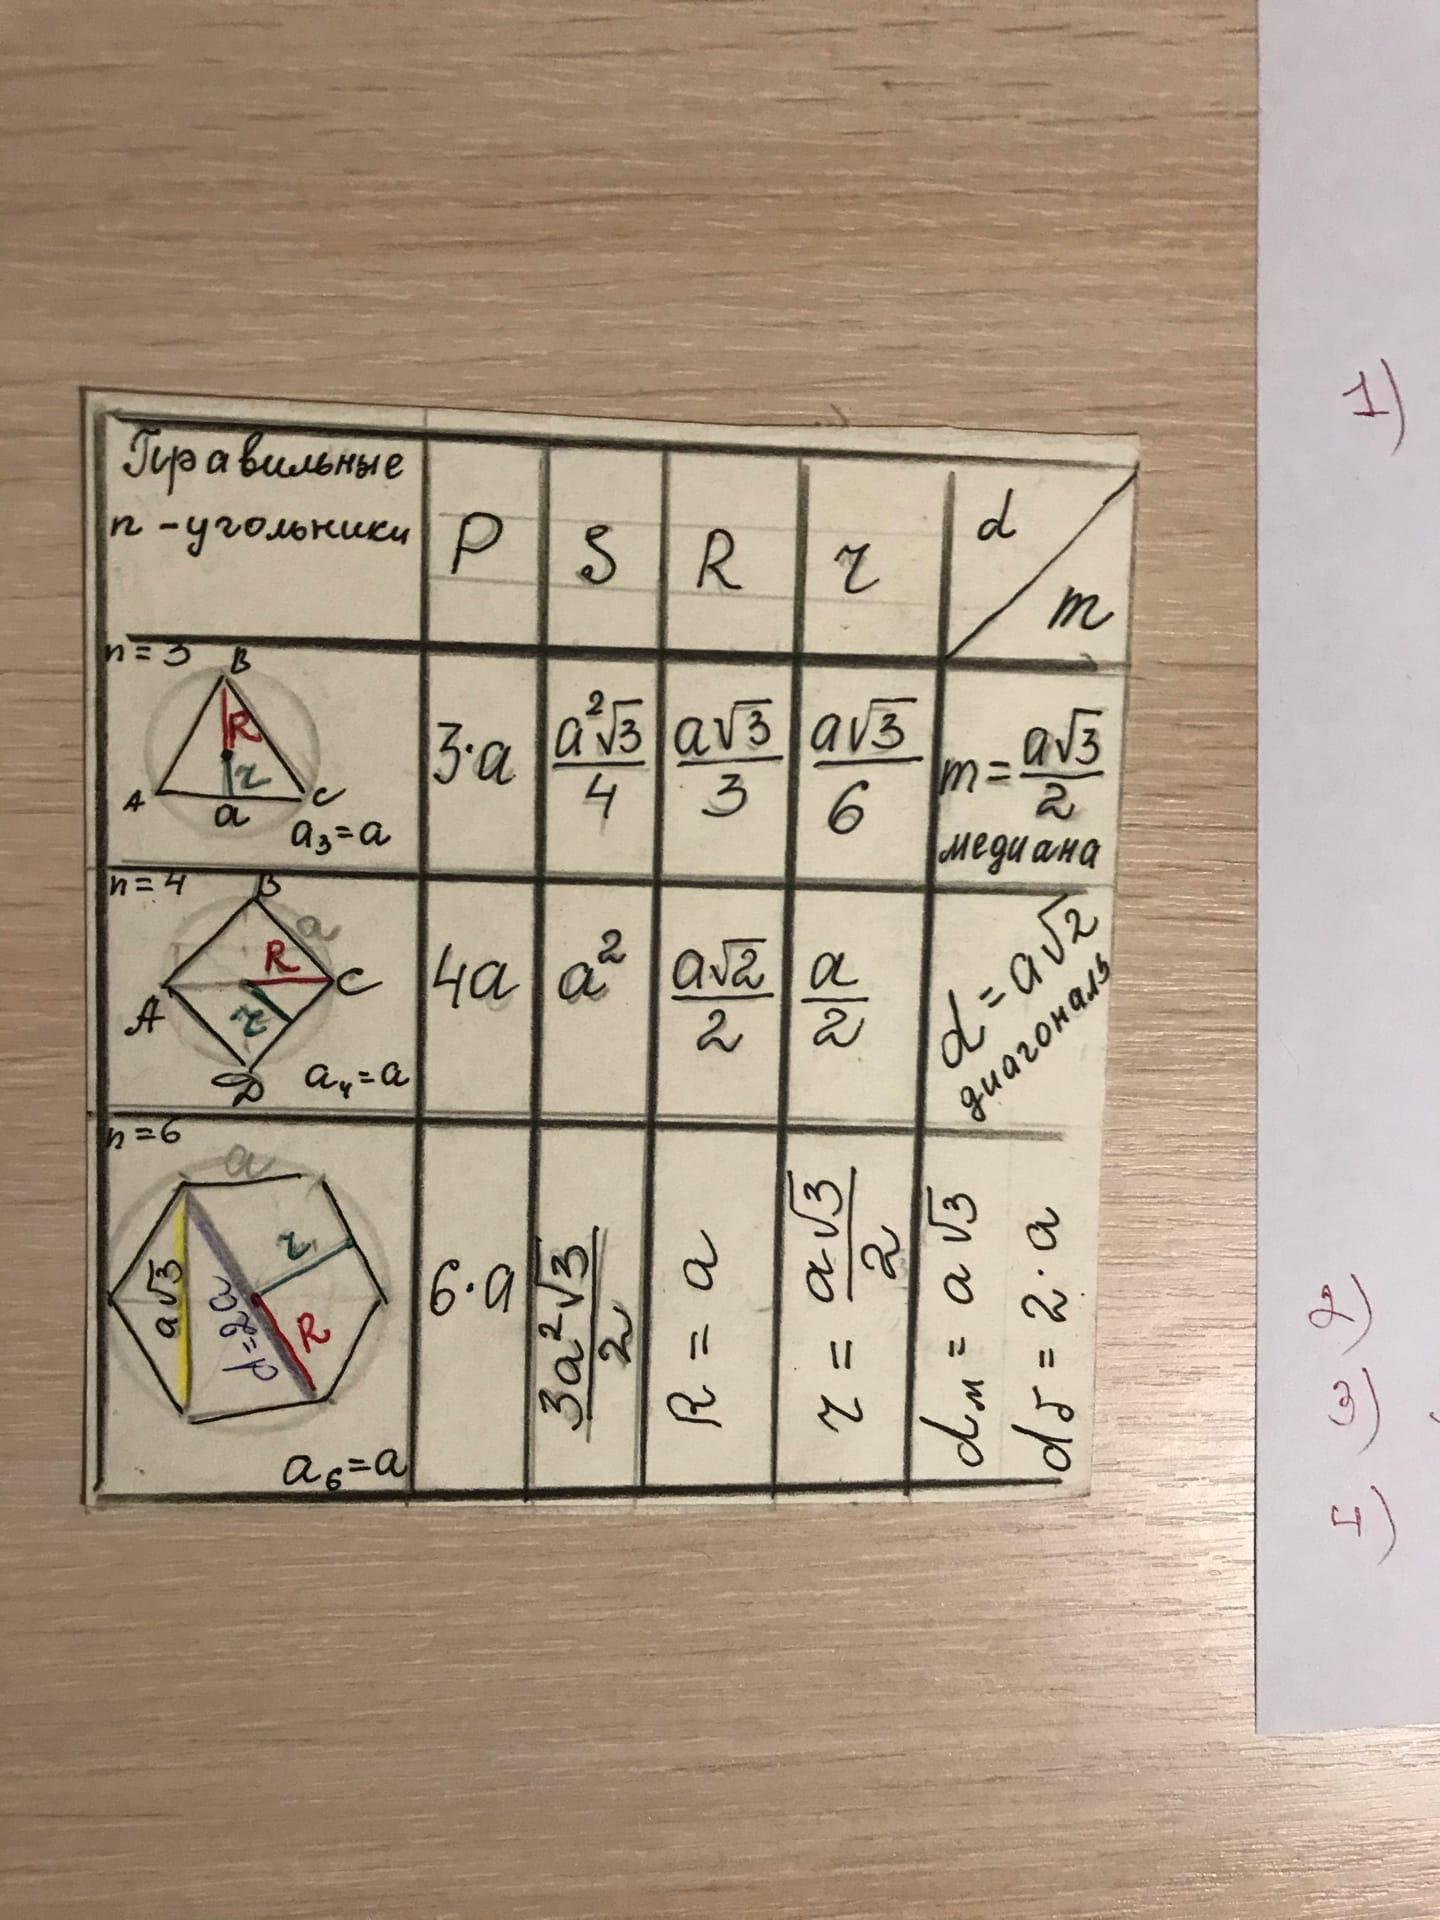 Правильные
n-угольники
P
S
R
r
d
m
n=3
B
R
r
A
a
C
a₃=a
3·a
a²√3/4
a√3/3
a√3/6
m=a√3/2
медиана
n=4
B
a
R
A
C
r
D
a₄=a
4a
a²
a√2/2
a/2
d=a√2
диагональ
n=6
a
r
a√3
d=2a
R
a₆=a
6·a
3a²√3/2
R=a
r=a√3/2
dм=a√3
dб=2·a
1)
2)
3)
4)